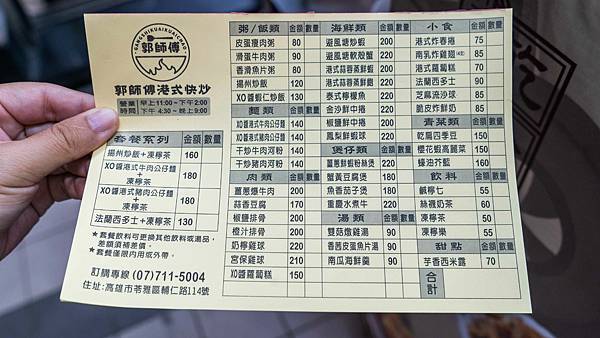 郭師傅
郭師傅港式快炒
營業時間 早上11:00~下午2:00
下午4:30~晚上9:00
套餐系列 金額 數量
揚州炒飯+凍檸茶 160
XO醬港式牛肉公仔麵+凍檸茶 180
XO醬港式豬肉公仔麵+凍檸茶 180
法蘭西多士+凍檸茶 130
★套餐飲料可更換其他飲料或湯品,
差額須補差價。
★套餐僅限內用或外帶。
訂購專線 (07)711-5004
住址:高雄市苓雅區輔仁路114號
粥/飯類 金額 數量
皮蛋瘦肉粥 80
滑蛋牛肉粥 90
香滑魚片粥 80
揚州炒飯 120
XO醬蝦仁炒飯 130
麵類 金額 數量
XO醬港式牛肉公仔麵
XO醬港式豬肉公仔麵
干炒牛肉河粉
干炒豬肉河粉
肉類 金額 數量
薑蔥爆牛肉 200
蒜香豆腐
椒鹽排骨 200
橙汁排骨 200
奶檸雞球 220
宮保雞球 210
XO醬蘿蔔糕 150
海鮮類 金額 數量
避風塘炒蝦
避風塘軟殼蟹
港式蒜蓉蒸鮮蝦
港式蒜蓉蒸鮮鮑
泰式檸檬魚
金沙鮮中捲
椒鹽鮮中捲
鳳梨鮮蝦球
煲仔類 金額 數量
薑蔥鮮蝦粉絲煲 220
蟹黃豆腐煲 180
魚香茄子煲 180
重慶水煮牛 220
湯類 金額 數量
雙菇燉雞湯 90
香茜皮蛋魚片湯 90
南瓜海鮮羹 90
小食 金額 數量
港式炸春捲 75
南乳炸雞腿 85
港式蘿蔔糕 70
法蘭西多士 90
芝麻流沙球 85
脆皮炸鮮奶 85
青菜類 金額 數量
乾扁四季豆 150
櫻花蝦高麗菜 150
蠔油芥藍 160
飲料 金額 數量
鹹檸七 55
絲襪奶茶 60
凍檸茶 50
凍檸樂 55
甜點 金額 數量
芋香西米露 70
合計